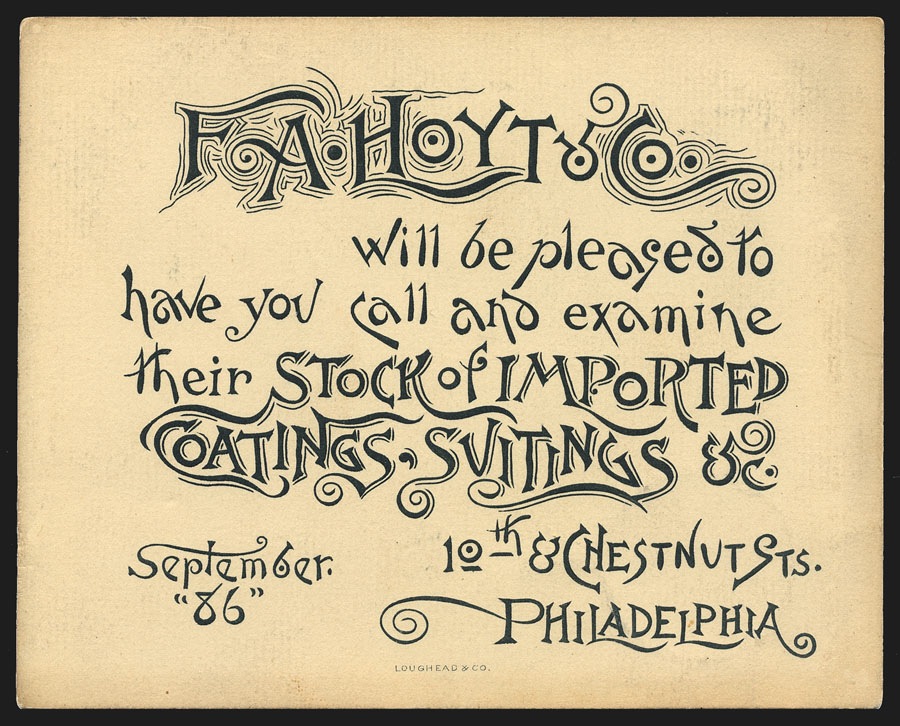 F. A. HOYT & Co.
will be pleased to
have you call and examine
their STOCK of IMPORTED
COATINGS, SUITINGS &c.
September. 10th & CHESTNUT STS.
"86" PHILADELPHIA
LOUGHEAD & CO.